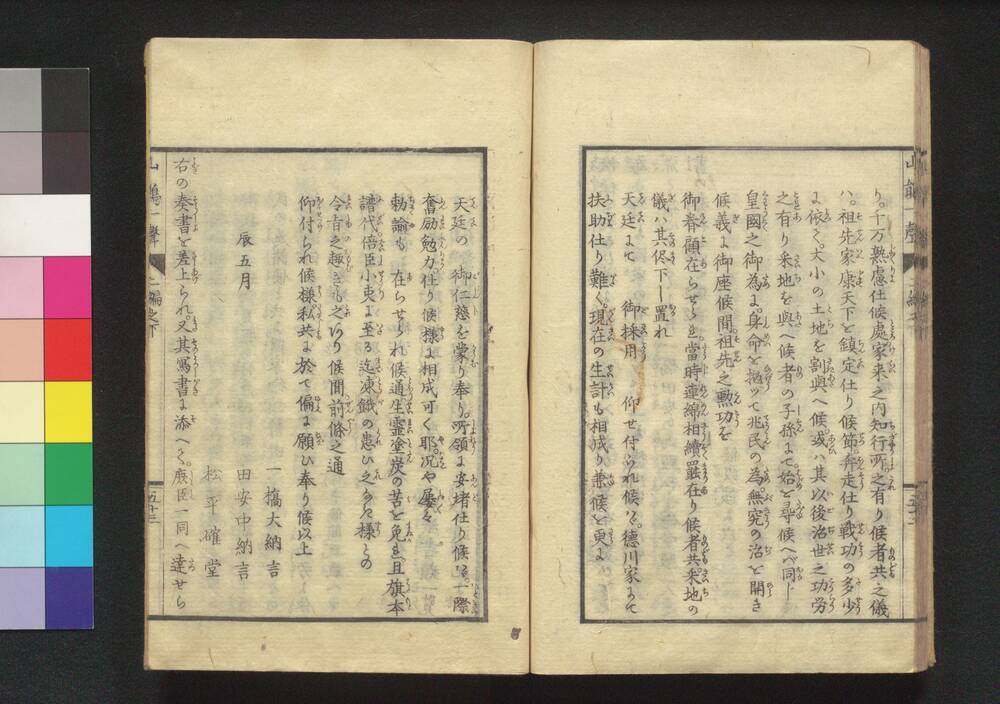 り。千万熟慮仕候處家来之内知行所之有り候者共之儀
ハ。祖先家康天下を鎮定仕り候節。奔走仕り戦功の多少
に依て。大小の土地を割與へ候。或ハ其以後治世之功労
之有り采地を與へ候者の子孫まで。始を尋候へバ同じ
皇國之御為に。身命を抛ツて兆民の為。無究の治を開き
候義に御座候間。祖先之勲功を
御眷顧在らせられ。當時連綿相續罷在り候者共。采地の
儀ハ其侭下し置れ
天廷にて 御採用 仰せ付られ候ハヾ。徳川家にて
扶助仕り難く。現在の生計も相成り兼候を更に
天廷の 御仁慈を蒙り奉り。所領に安堵仕り候ハヾ。一際
奮励勉力仕り候様に相成可く耶。况や屡々
勅諭も 在らせられ候通生霊塗炭の苦を免れ。且旗本
譜代倍臣小吏に至る迄凍餓の患ひ之なき様との
今旨之趣きも之あり候間。前條之通
仰付られ候様。私共に於て偏に願ひ奉り候以上
一橋大納言
辰五月 田安中納言
松平確堂
右の奏書を差上られ。又其寫書に添へて。麾臣一同へ達せら
山鵑一聲 二編之下
五十三